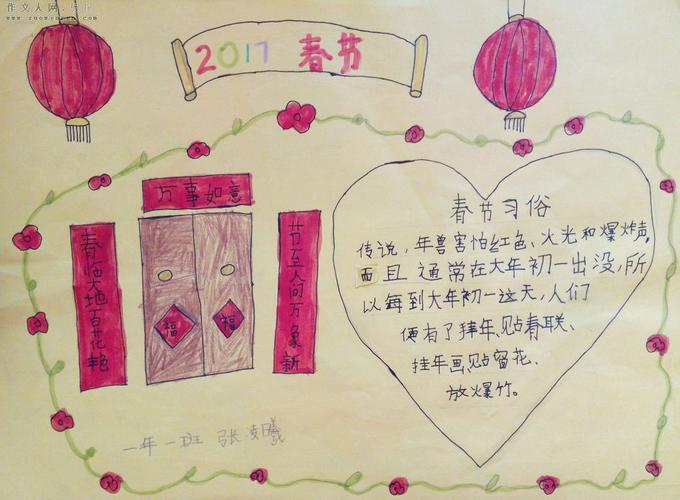 作文人网
2017 春节
万事如意
春临大地百花艳
福 福
节至人间万象新
春节习俗
传说，年兽害怕红色、火光和爆炸声，
而且通常在大年初一出没，所
以每到大年初一这天，人们
便有了拜年、贴春联、
挂年画、贴窗花、
放爆竹。
一年一班 张